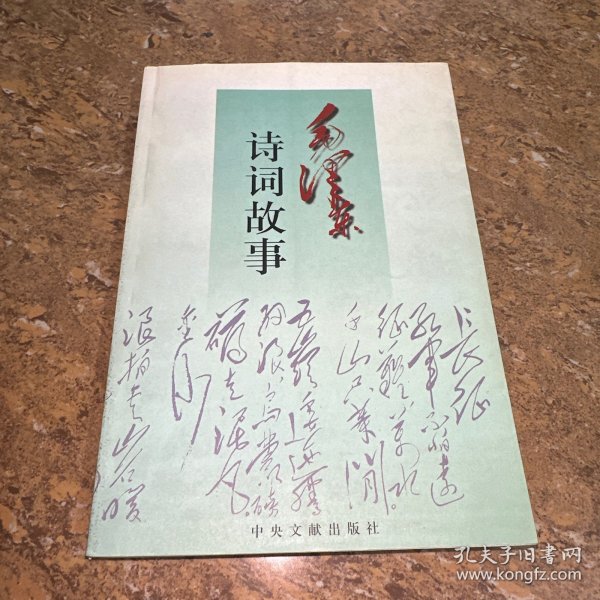 毛泽东
诗词故事
长征
红军不怕远
征难万水
千山只等闲
五岭逶迤腾
细浪乌蒙磅
礴走泥丸
金沙
浪拍云崖暖
中央文献出版社
孔夫子旧书网
www.kongfz.com